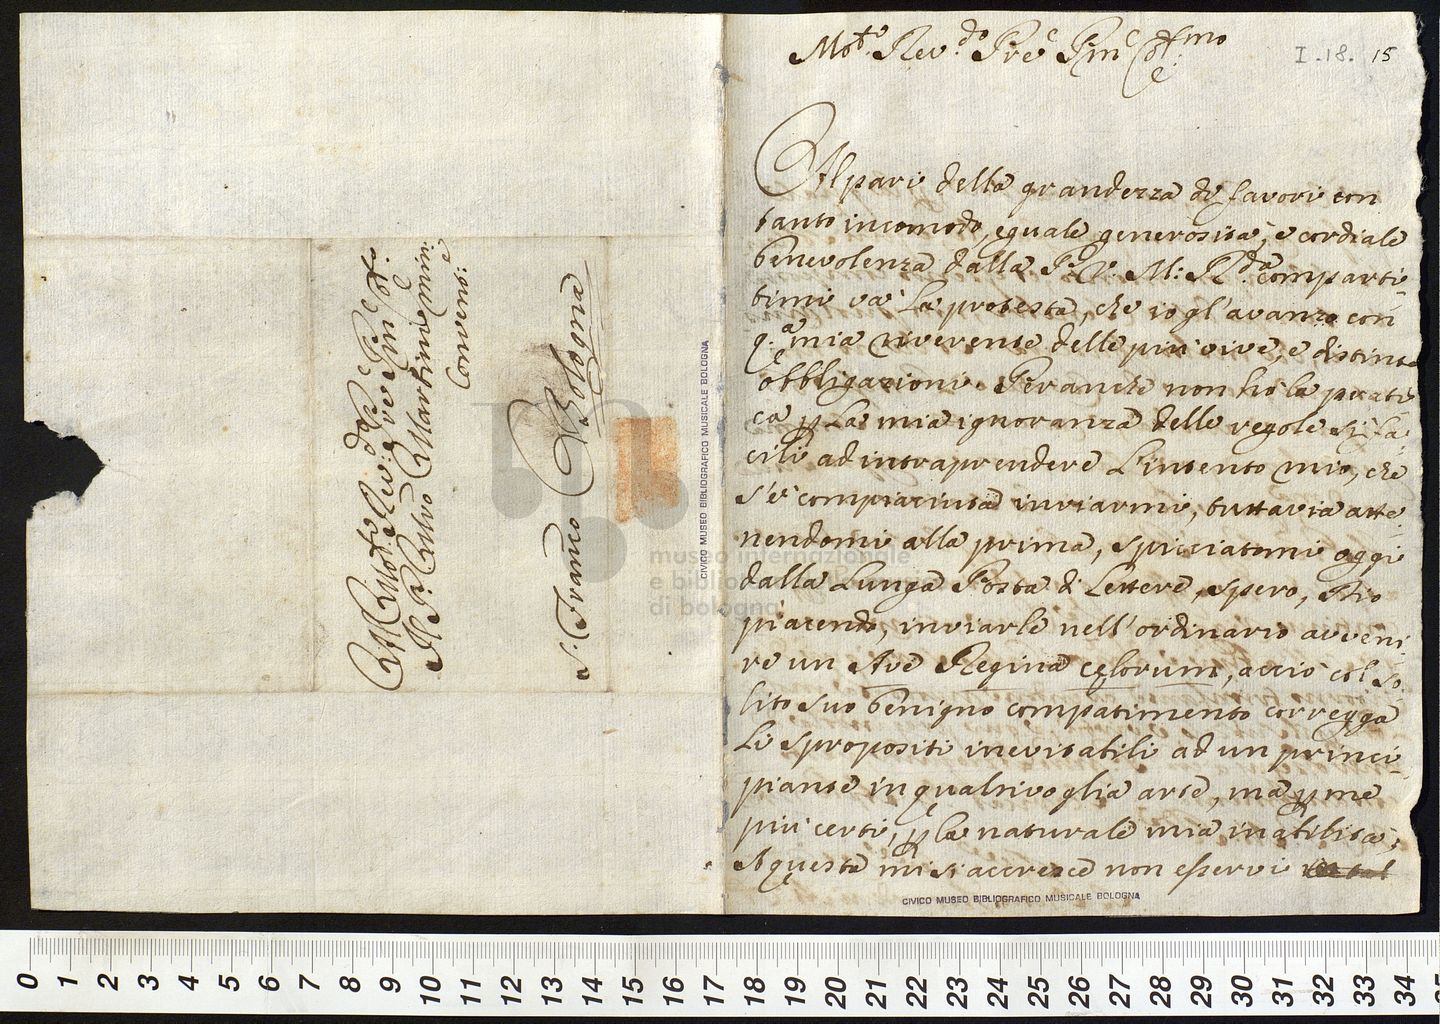 I.18. 15
Mo.to Rev.do Pre Pne
Al pari della grandezza di favori con
tanto incomodo, eguale generosità, e cordiale
benevolenza dalla P. V. M: R.da comparti-
timi và la protesta, che io gl'avanzo con
q.a mia riverente delle più vive, e distinte
obbligazioni. Peranche non hò la prati-
ca p la mia ignoranza delle regole sì fa-
cili ad intraprendere l'intento mio, che
s'è compiaciuta inviarmi, tuttavia atte-
nendomi alla prima, spicciatomi oggi
dalla lunga Posta di lettere, spero, Dio
piacendo, inviarle nell'ordinario avveni-
re un Ave Regina cęlorum, acciò col so-
lito suo benigno compatimento corregga
li spropositi inevitabili ad un princi-
piante in qualsivoglia arte, mà p me
più certi, p la naturale mia inabilità;
A questa mi si accresce non esservi
Al Molto Rev.do Pre Pne
Il P. Martini Min:
Convent:
S. Franco Bologna
CIVICO MUSEO BIBLIOGRAFICO MUSICALE BOLOGNA
CIVICO MUSEO BIBLIOGRAFICO MUSICALE BOLOGNA
museo internazionale
e biblioteca della musica
di bologna
0 1 2 3 4 5 6 7 8 9 10 11 12 13 14 15 16 17 18 19 20 21 22 23 24 25 26 27 28 29 30 31 32 33 34